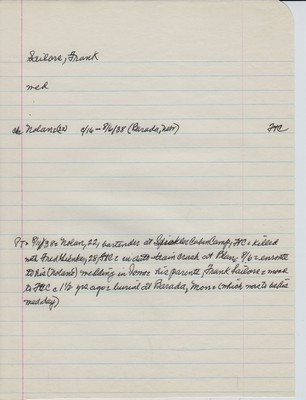 Sailors, Frank
med
ch Nolan(22) 9/16–9/6/38 (Barada, Nebr) FtC
Pr= 9/9/38= Nolan, 22, bartender at Spinkles Cabin Camp, FtC = killed
with Fred Kuenke, 28, FtC = in auto-train crash at Blair, 9/6 = enroute
to his (Nolan's) wedding in = his parents, Frank Sailors = moved
to FtC = 1½ yrs ago = buried at Barada, Mon = (which was to be his
wed day)